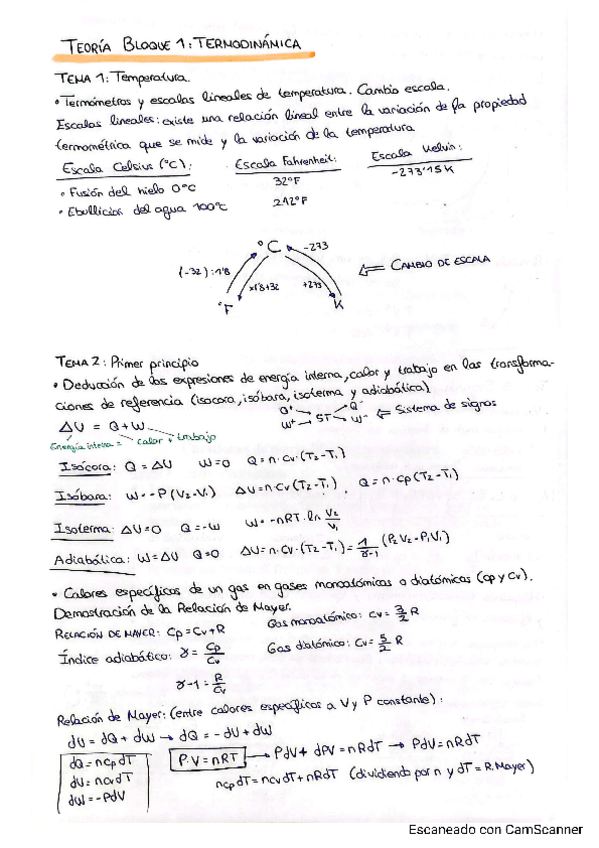 TEORÍA BLOQUE 1: TERMODINÁMICA
TEMA 1: Temperatura.
• Termómetros y escalas lineales de temperatura. Cambio escala.
Escalas lineales: existe una relación lineal entre la variación de la propiedad
termométrica que se mide y la variación de la temperatura
Escala Celsius (°C): Escala Fahrenheit: Escala Kelvin:
• Fusión del hielo 0°C 32°F -273'15 K
• Ebullición del agua 100°C 212°F
°C -273
(-32):1'8 x1'8+32 +273 ⇐ CAMBIO DE ESCALA
°F K
TEMA 2: Primer principio
• Deducción de las expresiones de energía interna, calor y trabajo en las transforma-
ciones de referencia (isocora, isóbara, isoterma y adiabática)
Q+ Q-
W+ → ST → W- ⇐ Sistema de signos
ΔU = Q + W
Energía interna = calor + trabajo
Isócora: Q = ΔU W=0 Q = n·cv·(T2-T1)
Isóbara: W = -P(V2-V1) ΔU = n·cv(T2-T1) Q = n·cp(T2-T1)
Isoterma: ΔU=0 Q=-W W = -nRT·ln V2/V1
Adiabática: W=ΔU Q=0 ΔU = n·cv·(T2-T1) = 1/γ-1 (P2V2-P1V1)
• Calores específicos de un gas en gases monoatómicos o diatómicos (cp y cv).
Demostración de la Relación de Mayer.
RELACIÓN DE MAYER: Cp = Cv+R Gas monoatómico: cv = 3/2 R
Índice adiabático: γ = Cp/Cv Gas diatómico: cv = 5/2 R
γ-1 = R/Cv
Relación de Mayer: (entre calores específicos a V y P constante):
dU = dQ + dW → dQ = -dU + dW
dQ = ncpdT
dU = ncvdT
dW = -PdV
P·V = nRT → PdV + dPV = nRdT → PdV = nRdT
ncpdT = ncvdT + nRdT (dividiendo por n y dT = R.Mayer)
Escaneado con CamScanner